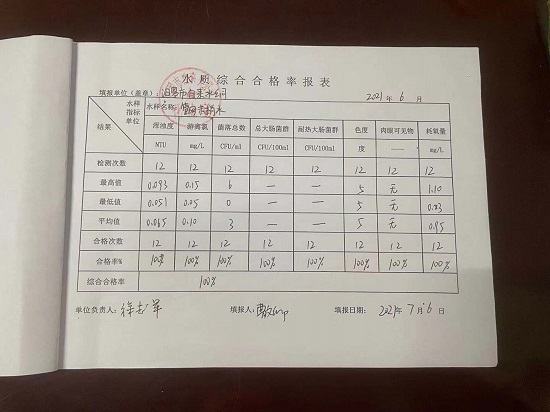 水质综合合格率报表
填报单位(盖章): 汨罗市自来水公司 2021年6月
水样 水样名称: 管网末梢水
指标 浑浊度 游离氯 菌落总数 总大肠菌群 耐热大肠菌群 色度 肉眼可见物 耗氧量
单位 NTU mg/L CFU/ml CFU/100ml CFU/100ml 度 —— mg/L
结果
检测次数 12 12 12 12 12 12 12 12
最高值 0.093 0.15 6 — — 5 无 1.10
最低值 0.051 0.05 0 — — 5 无 0.83
平均值 0.065 0.10 3 — — 5 无 0.95
合格次数 12 12 12 12 12 12 12 12
合格率% 100% 100% 100% 100% 100% 100% 100% 100%
综合合格率 100%
单位负责人: 填报人: 填报日期: 2021年7月6日